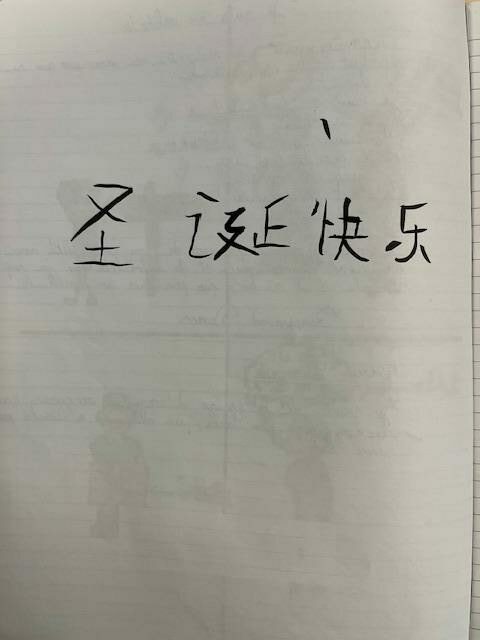 圣诞快乐